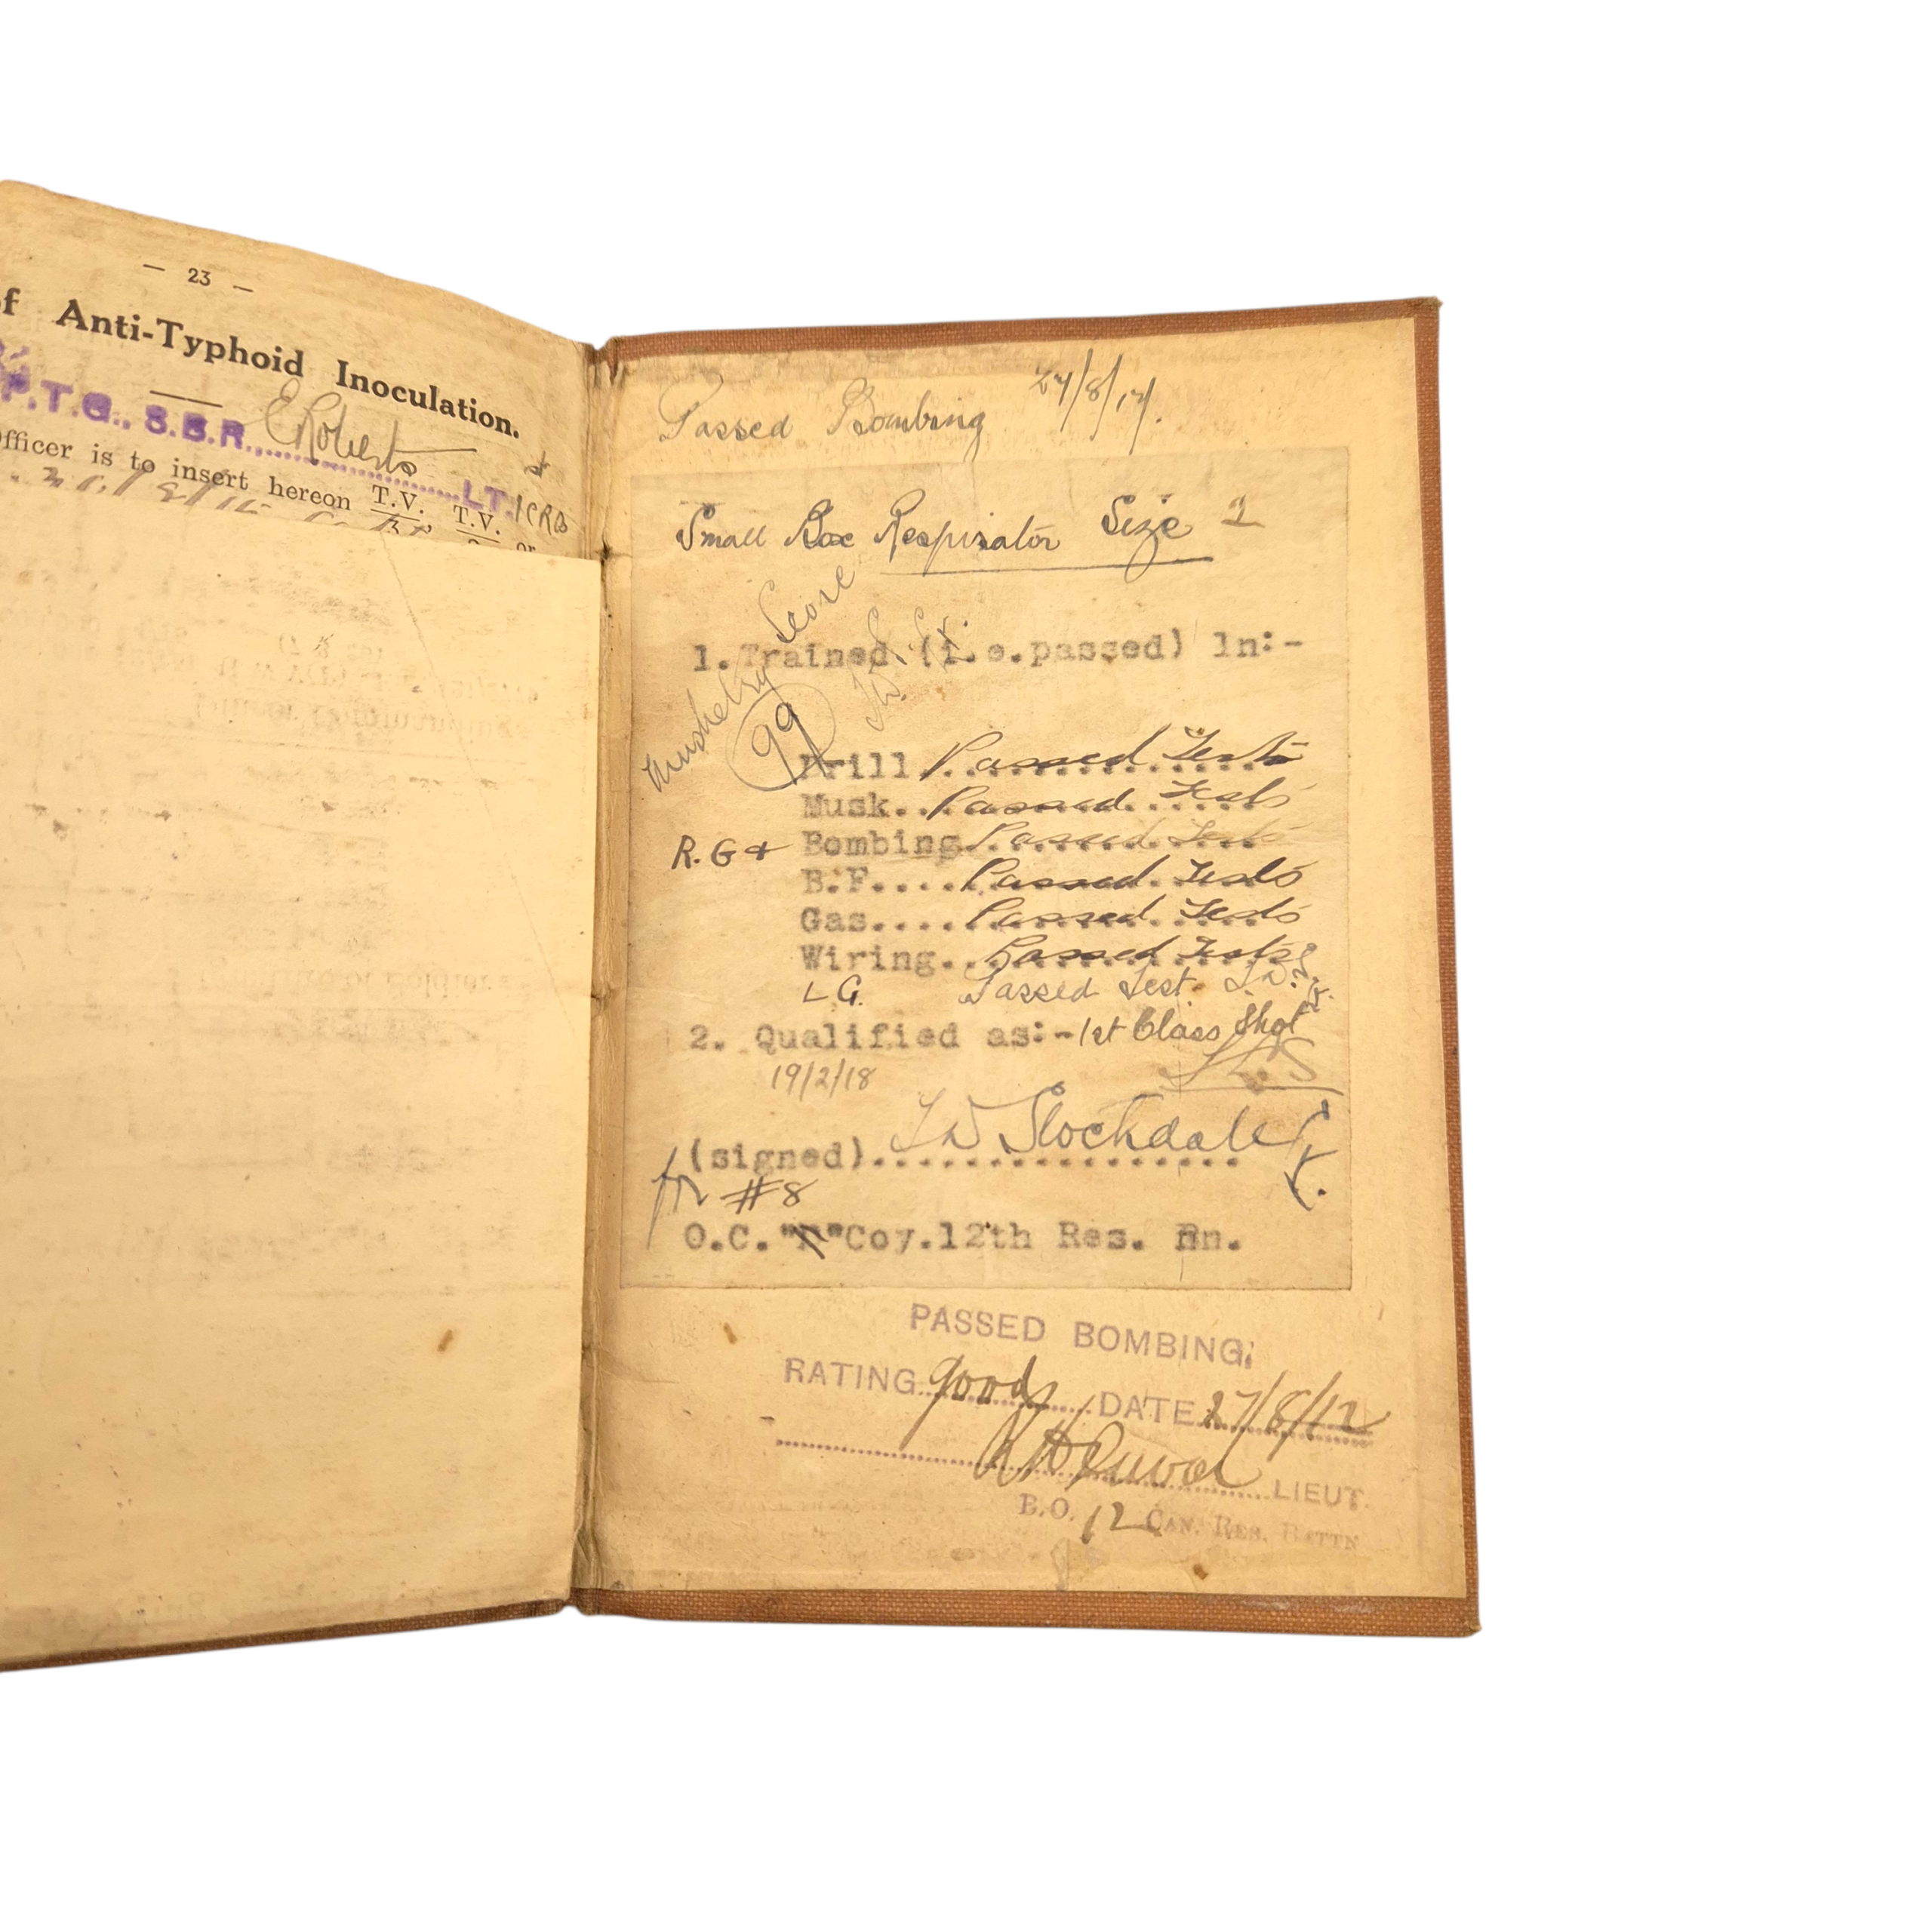 — 23 —
of Anti-Typhoid Inoculation.
P.T.G., S.B.R. E Roberts LT. 1 CRB
Officer is to insert hereon T.V. T.V. or
Passed Bombing 27/8/17.
Small Box Respirator Size 2
Musketry Score
99
1. Trained (i.e.passed) in:-
Drill Passed Tests
Musk.. Passed Tests
R.G & Bombing Passed Tests
B.F.... Passed Tests
Gas.... Passed Tests
Wiring.. Passed Tests
L G. Passed Test.
2. Qualified as:- 1st Class Shot
19/2/18
(signed). Stockdale Lt.
for #8
O.C. "A" Coy. 12th Res. Bn.
PASSED BOMBING:
RATING good DATE 27/8/17
LIEUT.
B.O. 12 CAN. RES. BATTN